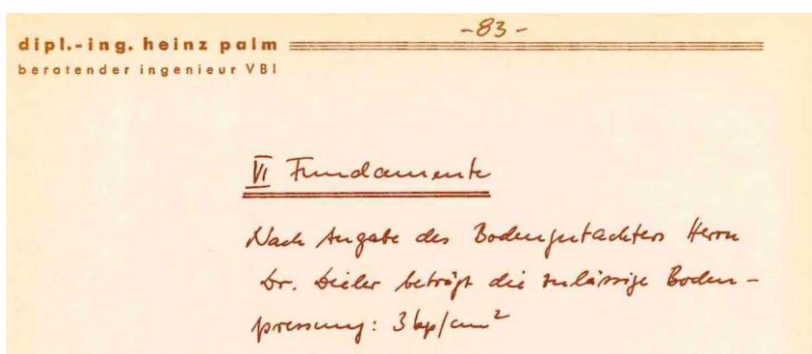 -83-
dipl.-ing. heinz palm
beratender ingenieur VBI
VI Fundamente
Nach Angabe des Bodengutachters Herrn
Dr. Dieler beträgt die zulässige Boden-
pressung: 3 kp/cm²